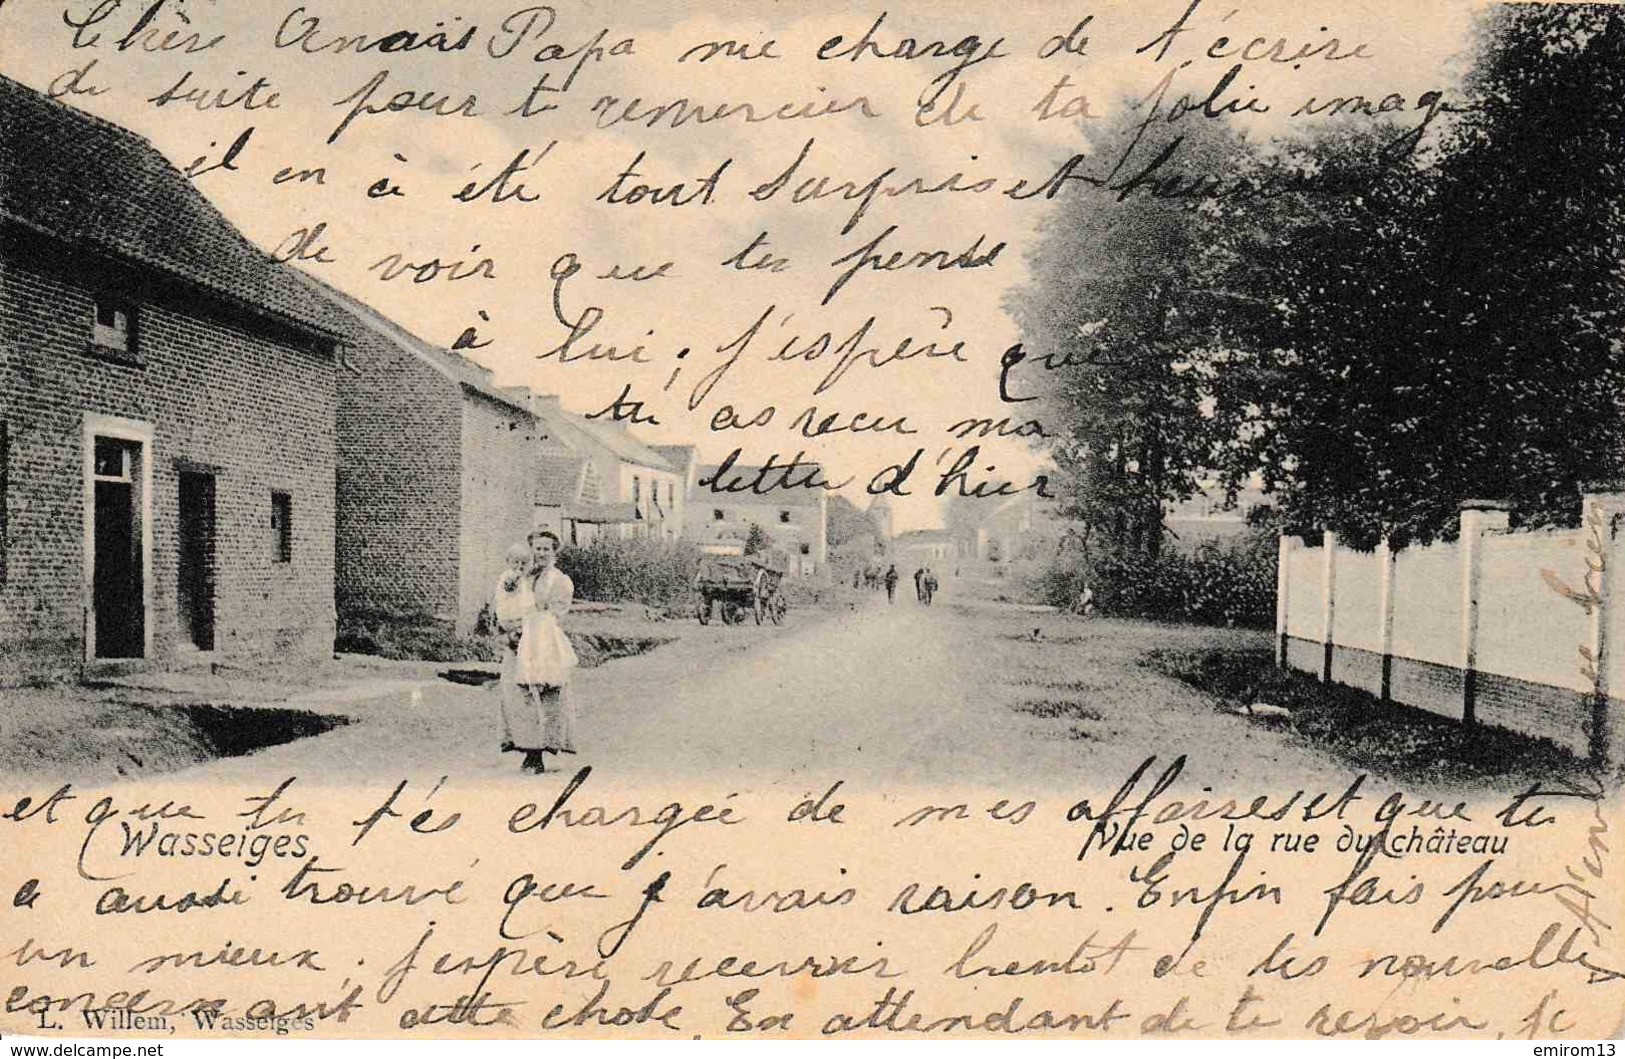 Chère Anaïs Papa me charge de t'écrire
de suite pour te remercier de ta jolie image
il en à été tout surpris et heureux
de voir que tu pense
à lui, j'espère que
tu as recu ma
lettre d'hier
et que tu t'és chargée de mes affaires et que tu
Wasseiges
Vue de la rue du château
a aussi trouvé que j'avais raison. Enfin fais pour
un mieux. J'espère recevoir bientôt de tes nouvelles
concernant cette chose, En attendant de te revoir, je
L. Willem, Wasseiges
bien
delcampe.net
emirom13